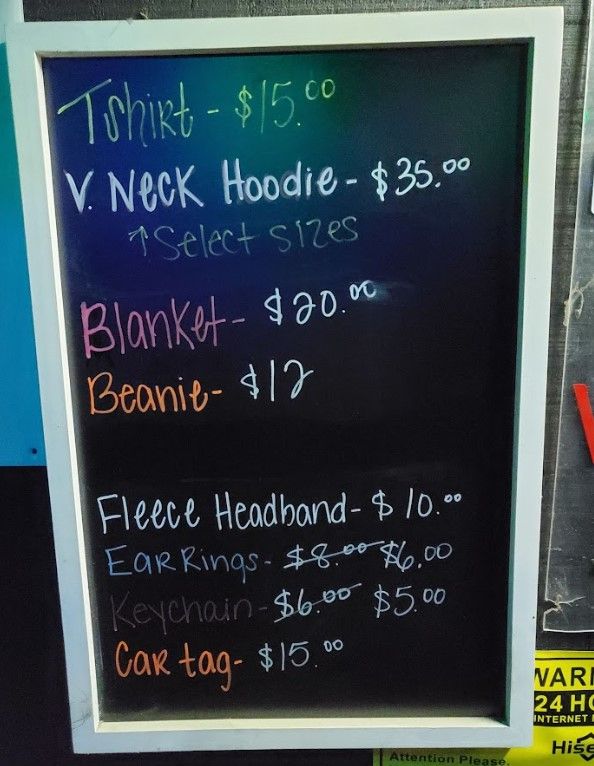 Tshirt - $15.00
V. Neck Hoodie - $35.00
↑ Select sizes
Blanket - $20.00
Beanie - $12
Fleece Headband - $10.00
EaR Rings - $8.00 $6.00
Keychain - $6.00 $5.00
CaR tag - $15.00
24 H
INTERNET
Hise
Attention Please